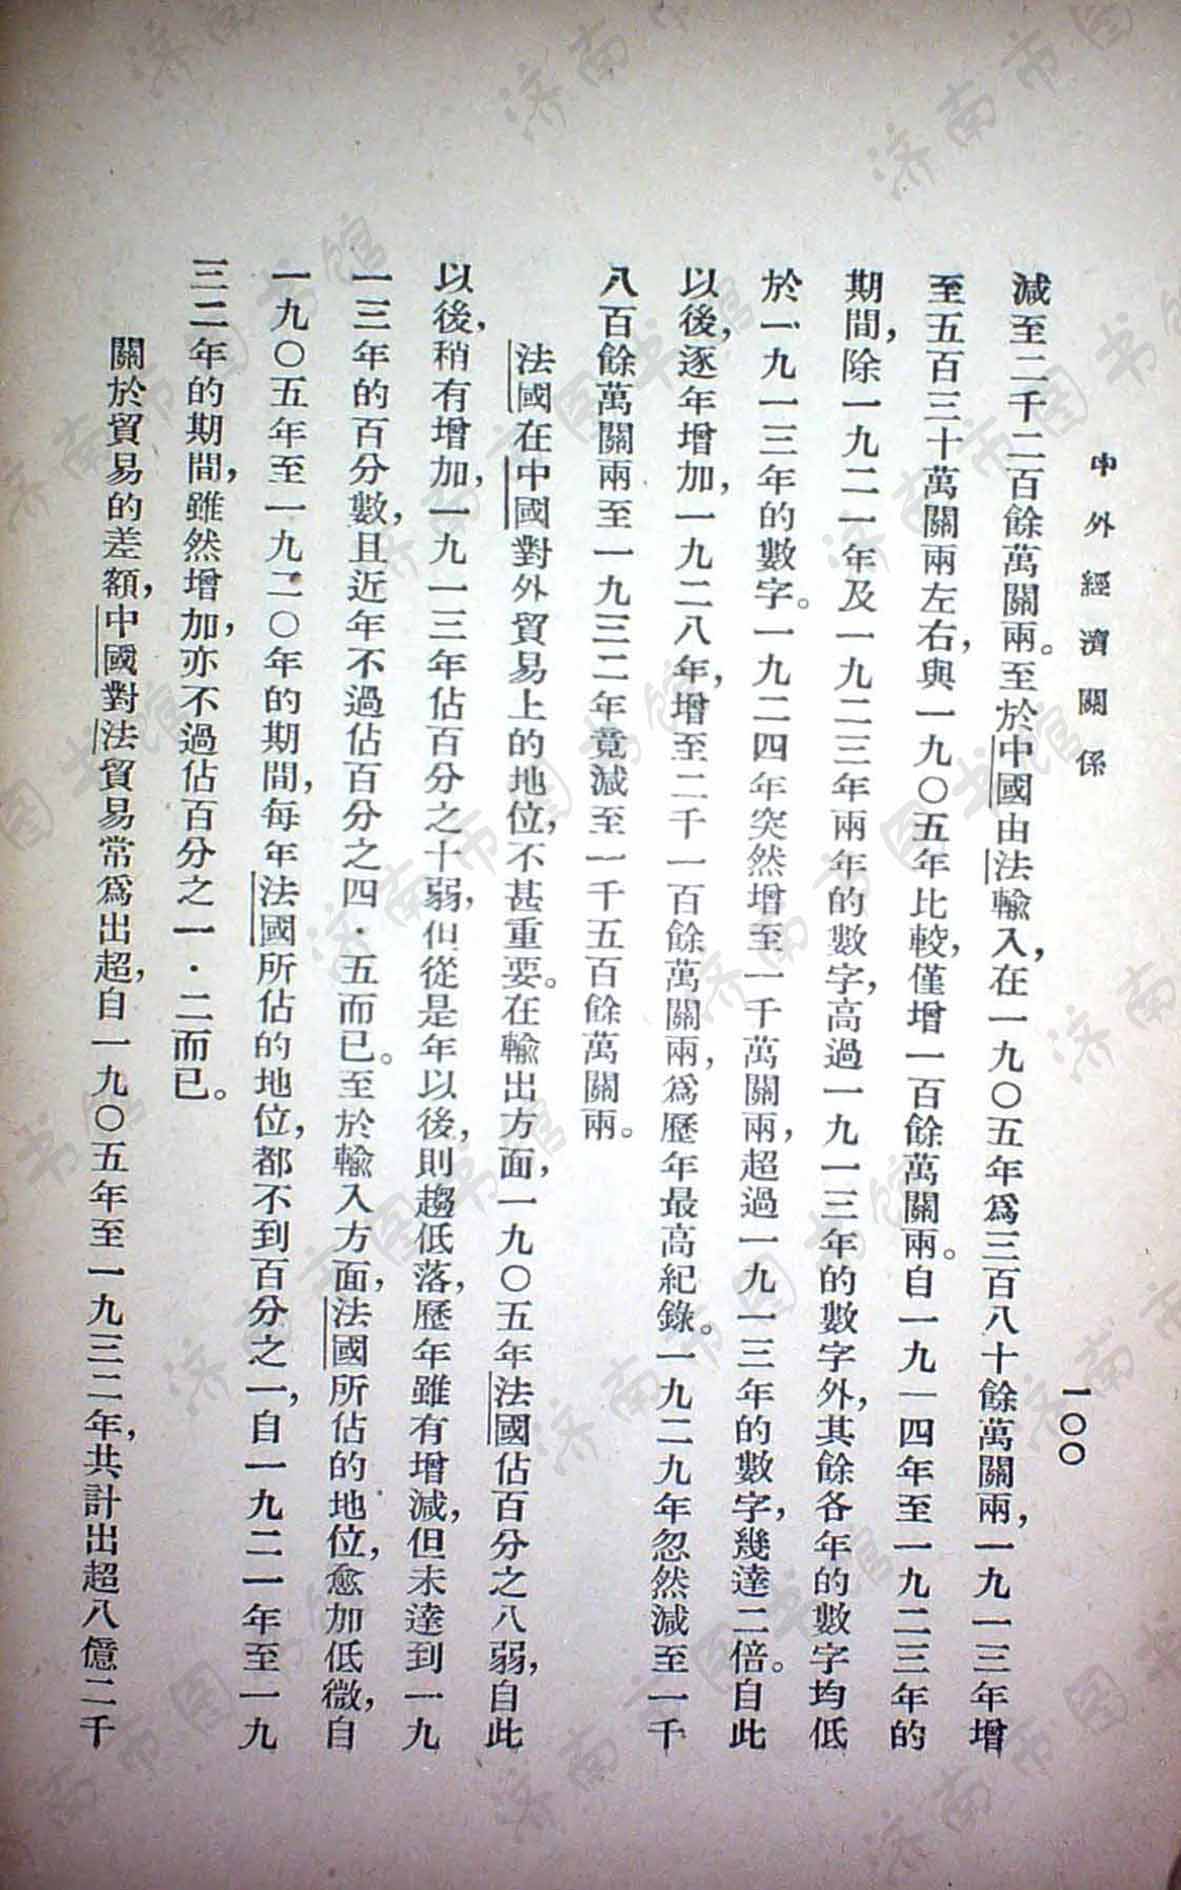 中外經濟關係
一〇〇
減至二千二百餘萬關兩。至於中國由法輸入，在一九〇五年爲三百八十餘萬關兩，一九一三年增
至五百三十萬關兩左右，與一九〇五年比較，僅增一百餘萬關兩。自一九一四年至一九二三年的
期間，除一九二一年及一九二三年兩年的數字，高過一九一三年的數字外，其餘各年的數字均低
於一九一三年的數字。一九二四年突然增至一千萬關兩，超過一九一三年的數字，幾達二倍。自此
以後，逐年增加，一九二八年，增至二千一百餘萬關兩，爲歷年最高紀錄。一九二九年忽然減至一千
八百餘萬關兩至一九三二年竟減至一千五百餘萬關兩。
法國在中國對外貿易上的地位，不甚重要。在輸出方面，一九〇五年法國佔百分之八弱，自此
以後，稍有增加，一九一三年佔百分之十弱，但從是年以後，則趨低落，歷年雖有增減，但未達到一九
一三年的百分數，且近年不過佔百分之四·五而已。至於輸入方面，法國所佔的地位，愈加低微，自
一九〇五年至一九二〇年的期間，每年法國所佔的地位，都不到百分之一，自一九二一年至一九
三二年的期間，雖然增加，亦不過佔百分之一·二而已。
關於貿易的差額，中國對法貿易常爲出超，自一九〇五年至一九三二年，共計出超八億二千
济南市图书馆